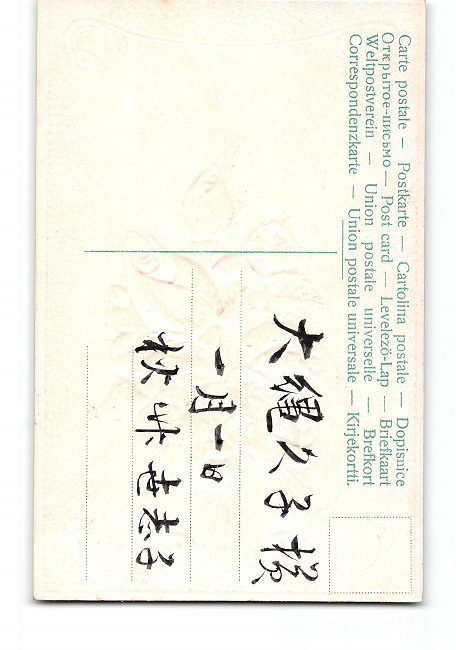 Carte postale — Postkarte — Cartolina postale — Dopisnice
Открытое-письмо — Post card — Levelező-Lap — Briefkaart
Weltpostverein — Union postale universelle — Brefkort
Correspondenzkarte — Union postale universale — Kirjekortti.
大縄久子様
一月一日
志子